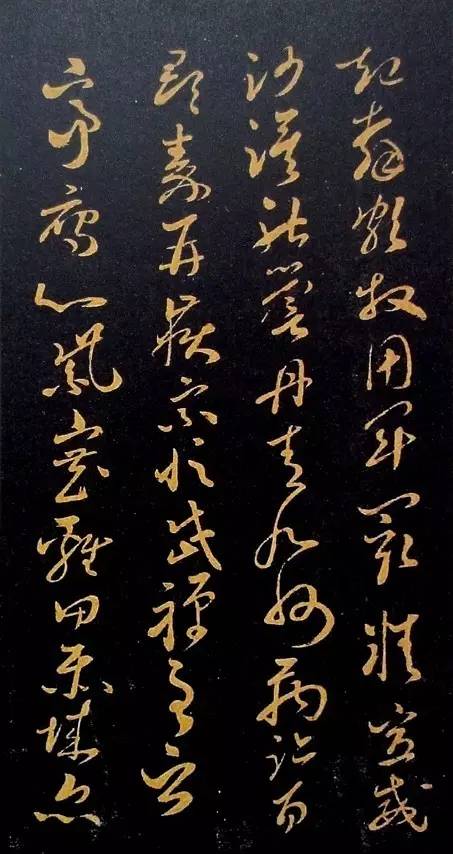 起翦頗牧用軍最精宣威
沙漠馳譽丹青九州禹跡百
郡秦并嶽宗恒岱禪主云
亭雁門紫塞雞田赤城昆